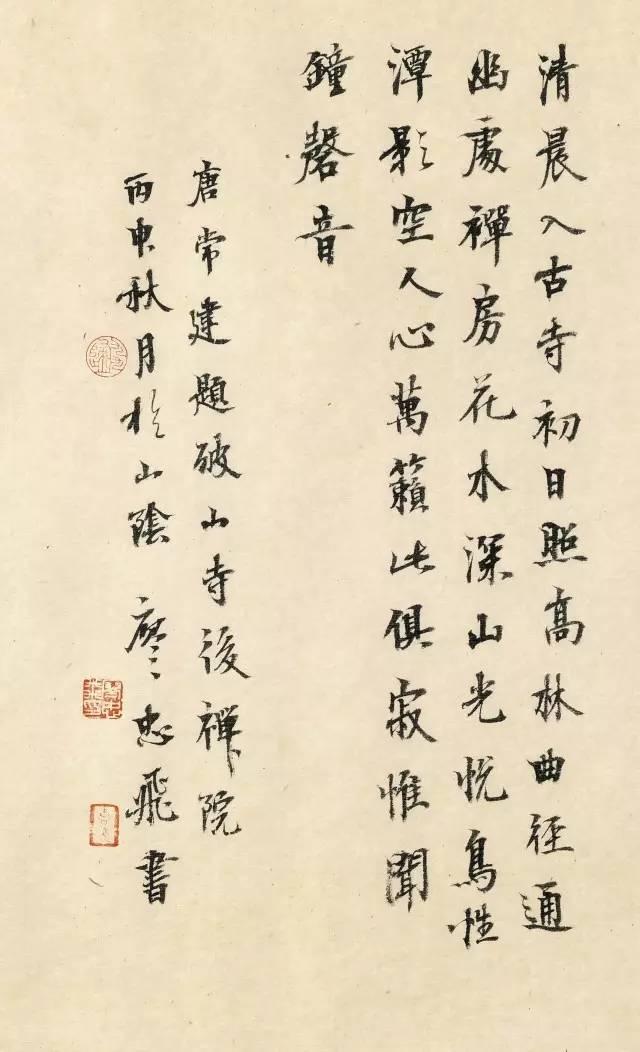 清晨入古寺初日照高林曲径通
幽處禪房花木深山光悅鳥性
潭影空人心萬籟此俱寂惟聞
鐘磬音
唐常建題破山寺後禪院
丙申秋月於山陰 廖忠飛書